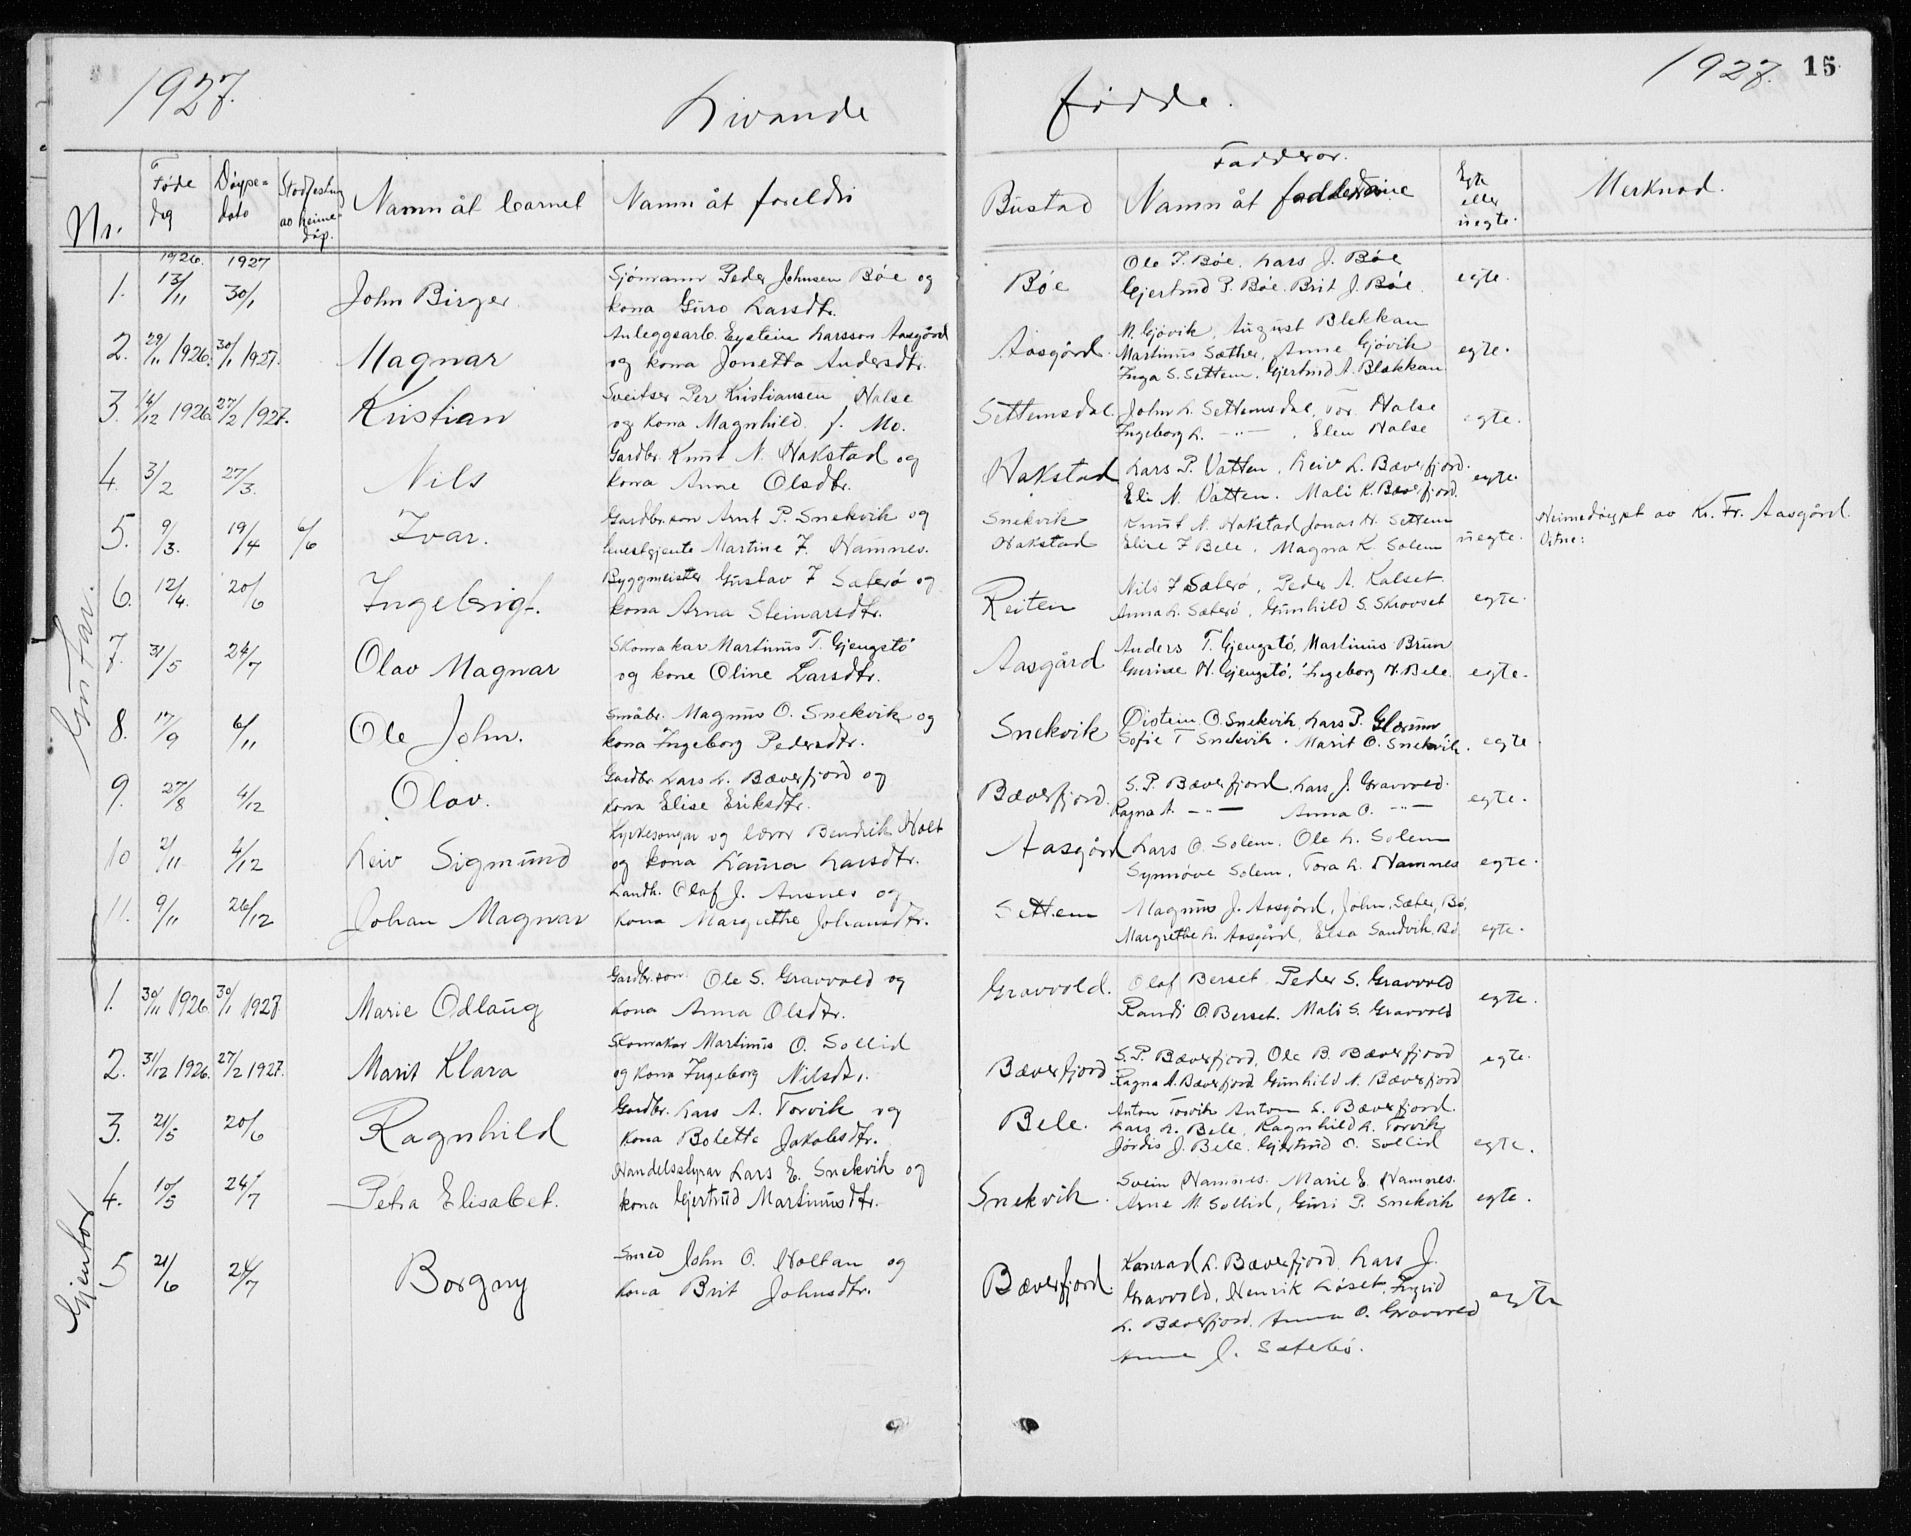 1927.
Livande
fødde.
1927.
15
Nr.
Føde
dag
Døype-
dato
Stadfesting
av heime-
dåp.
Namn åt barnet
Namn åt foreldri
Bustad
Fadderar.
Namn åt
Egte
eller
uegte.
Merknad.
1926.
1927
1. 13/11 30/1 John Birger. Sjömann Peder Johnsen Bøe og
kona Guro Larsdtr.
Bøe
Ole J. Bøe. Lars J. Bøe
Gjertrud P. Bøe. Brit J. Bøe.
egte.
2. 29/11 1926. 30/1 1927. Magnar
Anleggsarb. Eystein Larsson Aasgård
og kona Jonetta Andersdtr.
Aasgård.
N. Gjøvik, August Blekkan
Martinus Sæther, Anne Gjøvik
Inga S. Settem, Gjertrud A. Blekkan
egte.
3. 14/12 1926. 27/2 1927. Kristian
Sveitser Per Kristiansen Halse
og kona Magnhild f. Mo.
Settemsdal.
John L. Settemsdal, Tor. Halse
Ingeborg L. -"- , Elen Halse
egte.
4. 3/2 27/3. Nils
Gardbr. Knut N. Hakstad og
kona Anne Olsdtr.
Hakstad
Lars P. Vatten, Leiv L. Bæverfjord.
Eli N. Vatten. Mali K. Bæverfjord.
egte.
5. 9/3. 19/4 6/6 Ivar.
Gardbr.son Arnt P. Snekvik og
huesgjente Martine F. Hamnes.
Snekvik
Hakstad
Knut N. Hakstad, Jonas H. Settem
Elise F Bele, Magna K. Solem
uegte.
Heimedøypt av Kr. Fr. Aasgård.
Vitne:
6. 12/4. 20/6 Ingebrigt.
Byggmeister Gustav F Saterø og
kona Arna Steinarsdtr.
Reiten
Nils F Saterø, Peder A. Kalset.
Anna L. Saterø, Gunhild S. Skrovset
egte.
7. 31/5 24/7 Olav Magnar
Skomakar Martinus T. Gjengstø
og kone Oline Larsdtr.
Aasgård
Anders T. Gjengstø, Martinus Brun
Gurine H. Gjengstø, Ingeborg H. Bele.
egte.
8. 17/9 6/11 Ole John.
Småbr. Magnus O. Snekvik og
kona Ingeborg Pedersdtr.
Snekvik
Øistein O. Snekvik, Lars P. Glærum
Sofie T Snekvik. Marit O. Snekvik.
egte
9. 27/8 4/12 Olav.
Gardbr. Lars L. Bæverfjord og
kona Elise Eriksdtr.
Bæverfjord.
S. P. Bæverfjord, Lars J. Gravvold.
Ragna A. -"- Anna O. -"-
egte.
10 2/11 4/12 Leiv Sigmund
Kyrkesongar og lærar Bendrik Holt
og kona Laura Larsdtr.
Aasgård
Lars O. Solem. Ole L. Solem
Synnøve Solem. Tora L. Hamnes
egte.
11. 9/11 26/12 Johan Magnar
Landh. Olaf J. Ansnes og
kona Margrethe Johansdtr.
Settem
Magnus J. Aasgård, John Sæter, Bø,
Margrethe L. Aasgård, Elsa Sandvik, Bø
egte.
1. 30/11 1926. 30/1 1927. Marie Odlaug
Gardbr.son Ole S. Gravvold og
kona Anna Olsdtr.
Gravvold.
Olaf Berset. Peder S. Gravvold
Randi O. Berset. Mali S. Gravvold
egte.
2. 31/12 1926. 27/2 1927. Marit Klara
Skomakar Martinus O. Sollid
og kona Ingeborg Nilsdtr.
Bæverfjord
S. P. Bæverfjord, Ole B. Bæverfjord
Ragna A. Bæverfjord Gunhild A. Bæverfjord
egte.
3. 21/5 20/6 Ragnhild
Gardbr. Lars A. Torvik og
kona Bolette Jakobsdtr.
Bele.
Anton Torvik Anton L. Bæverfjord.
Lars L. Bele. Ragnhild L. Torvik
Jørdis J. Bele. Gjertrud O. Sollid
egte.
4. 10/5 24/7 Petra Elisabet.
Handelsstyrar Lars E. Snekvik og
kona Gjertrud Martinusdtr.
Snekvik.
Svein Hamnes. Marie E. Hamnes.
Arne M. Sollid, Guri P. Snekvik
egte.
Gjentor
5 21/6 24/7 Borgny
Smed John O. Holtan og
kona Brit Johnsdtr.
Bæverfjord.
Konrad L. Bæverfjord, Lars J.
Gravvold, Henrik Løset, Ingrid
L. Bæverfjord. Anna O. Gravvold
Anne J. Settebø.
egte